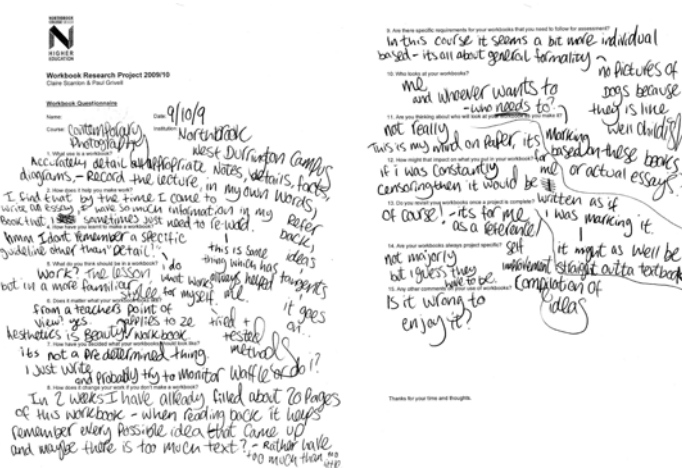 NORTHBROOK
HIGHER
EDUCATION
Workbook Research Project 2009/10
Claire Scanlon & Paul Grivell
Workbook Questionnaire
Name:
Date: 9/10/9
Course: Contemporary Photography
Institution: Northbrook West Durrington Campus
1. What use is a workbook?
Accurately detail appropriate Notes, details, facts,
diagrams, - Record the lecture, in my own words,
2. How does it help you make work?
I find that by the time I came to
write an essay, I have so much information in my
Book that sometimes just need to re-read.
Refer back, ideas tangents it goes on..
hmm I dont remember a specific
guideline other than "Detail".
this is some thing which has always helped me.
5. What do you think should be in a workbook?
Work? The lesson
but in a more familiar
i do what works for myself.
tried + tested methods
6. Does it matter what your workbook looks like?
from a teachers point of
view? yes. applies to ze
Aesthetics is Beauty workbook.
7. How have you decided what your workbooks should look like?
its not a predetermined thing.
I just write
and probably try to monitor waffle or do i?
8. How does it change your work if you don't make a workbook?
In 2 weeks I have already filled about 20 pages
of this workbook - when reading back it helps
remember every possible idea that came up
and maybe there is too much text? - Rather have
too much than too little
9. Are there specific requirements for your workbooks that you need to follow for assessment?
In this course it seems a bit more individual
based - its all about general formality - no pictures of
Dogs because they is line well childish
10. Who looks at your workbooks?
me
and whoever wants to
- who needs to?
11. Are you thinking about who will look at your workbook as you make it?
not really
This is my mind on paper, its
for me
marking based on these books or actual essays.
12. How might that impact on what you put in your workbook?
if i was constantly
censoring then it would be written as if
i was marking it.
it might as well be
straight outta textbook
13. Do you revisit your workbooks once a project is complete?
of course! - its for me
as a reference!
14. Are your workbooks always project specific?
not majorly
but i guess they have to be.
self improvement
compilation of ideas
15. Any other comments on your use of workbooks?
Is it wrong to
enjoy it?
Thanks for your time and thoughts.